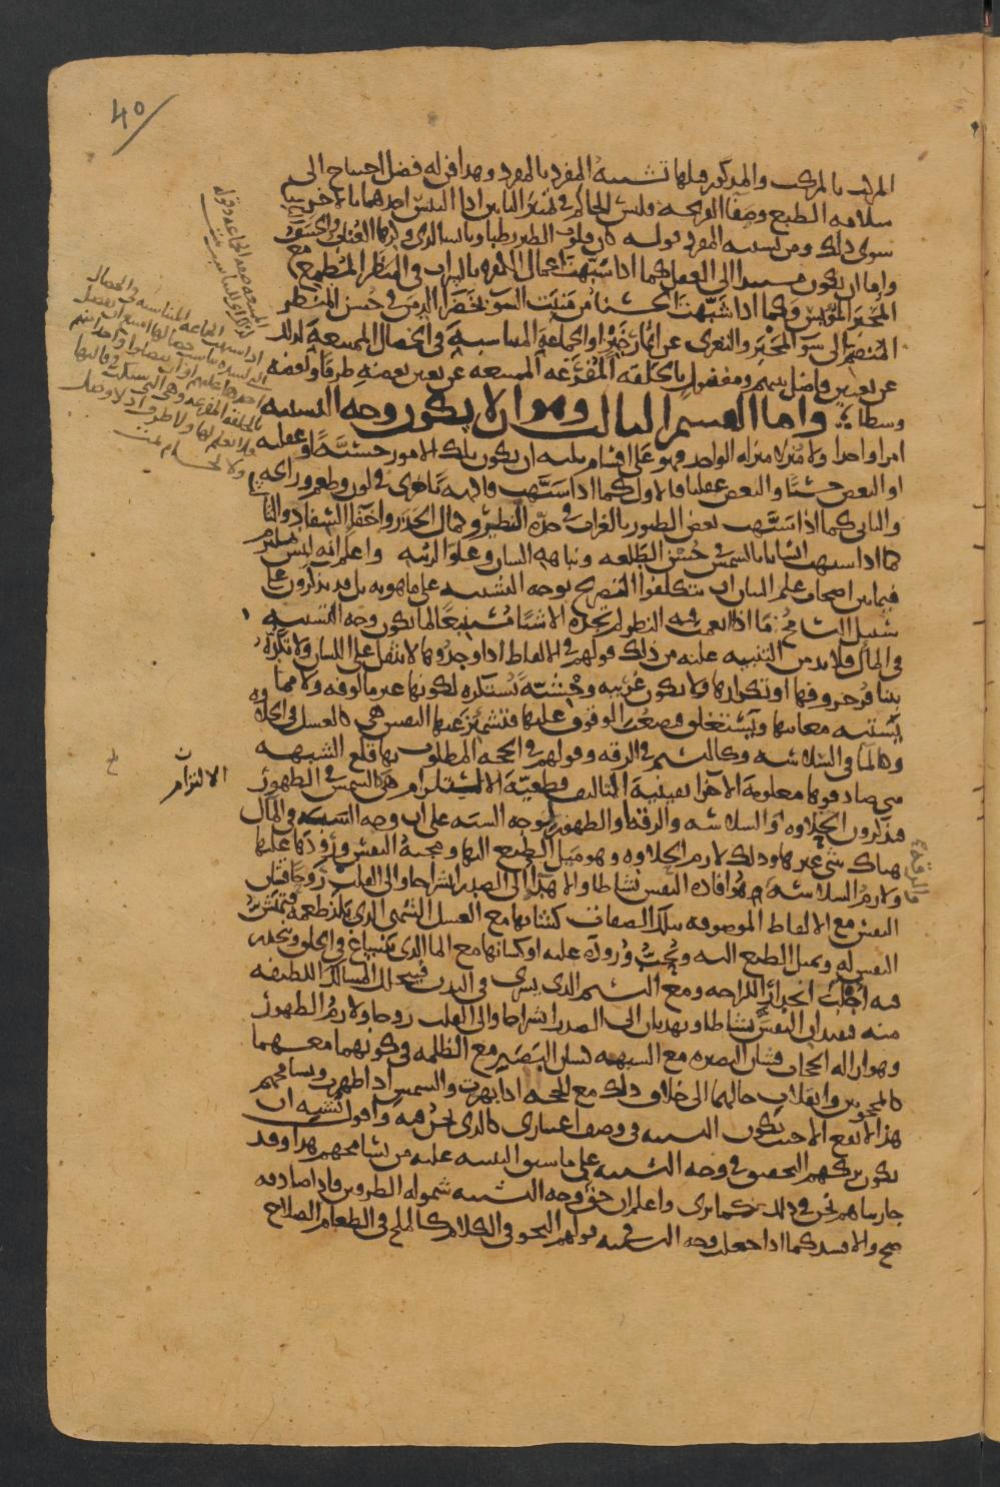 40
المركب بالمركب والمذكور قبلها تشبيه المفرد بالمفرد وهذا فن له فضل احتياج الى
سلامة الطبع وصفا القريحة فليس الحاكم في تمييز البابين اذا التبس احدهما بالاخر
سوى ذلك ومن تشبيه المفرد قوله كان قلوب الطير رطبا ويابسا لدى وكرها العناب والحشف
واما ان يكون مستندا الى العقل كما اذا شبهت اعمال الكفرة بالسراب في المنظر المطمع مع
المخبر المؤيس وكما اذا شبهت الحسنا من منبت السوء بخضرا الدمن في حسن المنظر
المنضم الى سوء المخبر والتعري عن اثمار خير او الجماعة المتناسبة في الخصال الممتنعة لذلك
عن تعيين فاضل بينهم ومفضول بالحلقة المفرغة الممتنعة عن تعيين بعضه طرفا وبعضه
وسطا واما القسم الثالث وهو ان لا يكون وجه التشبيه
امرا واحدا ولا منزلا منزلة الواحد فهو على اقسام ثلثة ان يكون تلك الامور حسية او عقلية
او البعض حسيا والبعض عقليا فالاول كما اذا شبهت فاكهة باخرى في لون وطعم ورائحة
والثاني كما اذا شبهت بعض الطيور بالغراب في حدة النظر وكمال الحذر واخفا السفاد والثالث
كما اذا شبهت انسانا بالشمس في حسن الطلعة ونباهة الشان وعلو الرتبة واعلم انه ليس بملتزم
فيما بين اصحاب علم البيان ان يتكلفوا التصريح بوجه التشبيه على ما هو به بل قد يذكرون على
سبيل التسامح ما اذا امعنت فيه النظر لم تجده الا شيئا مستتبعا لما يكون وجه التشبيه
في المال فلا بد من التنبيه عليه من ذلك قولهم في الالفاظ اذا وجدوها لا تثقل على اللسان ولا تكده
بتنافر حروفها او تكرارها ولا تكون غريبة وحشية تستكره لكونها غير مالوفة ولا مما
يشتبه معانيها ويستغلق فيصعب الوقوف عليها وتشمئز عنها النفس هي كالعسل في الحلاوة
وكالما في السلاسة وكالنسيم في الرقة وقولهم في الحجة المطلوب بها قلع الشبهة
متى صادفوها معلومة الاجزا يقينية التاليف قطعية الاستلزام هي كالشمس في الظهور
فيذكرون الحلاوة والسلاسة والرقة والظهور لوجه الشبه على ان وجه الشبه في المال
هناك شي غيرها وذلك لازم الحلاوة وهو ميل الطبع اليها ومحبة النفس ورودها عليها
ولازم السلاسة والرقة وهو افادة النفس نشاطا والاهدا الى الصدر انشراحا والى القلب روحا فشان
النفس مع الالفاظ الموصوفة بتلك الصفات كشانها مع العسل الشهي الذي يلذ طعمه فتهش
النفس له ويميل الطبع اليه ويحب وروده عليه او كشانها مع الما الذي ينساغ في الحلق وينحدر
فيه اجلب انحدار للراحة ومع النسيم الذي يسري في البدن فيتخلل المسالك اللطيفة
منه فيفيدان النفس نشاطا ويهديان الى الصدر انشراحا والى القلب روحا ولازم الظهور
وهو ازالة الحجاب فشان البصيرة مع الشبهة كشان البصر مع الظلمة في كونهما معهما
كالمحجوبين وانقلاب حالهما الى خلاف ذلك مع الحجة اذا بهرت والشمس اذا ظهرت وتسامحهم
هذا لا يقع الا حيث يكون التشبيه في وصف اعتباري كالذي نحن فيه واقول يشبه ان
يكون تركهم التحقيق في وجه التشبيه على ما سبق التنبيه عليه من تسامحهم هذا وقد
جاريناهم نحن في ذلك كما ترى واعلم ان حق وجه التشبيه شموله الطرفين فاذا صادفه
صح والا فسد كما اذا جعلت وجه التشبيه في قولهم النحو في الكلام كالملح في الطعام الصلاح
الالتزام ن
والرقة